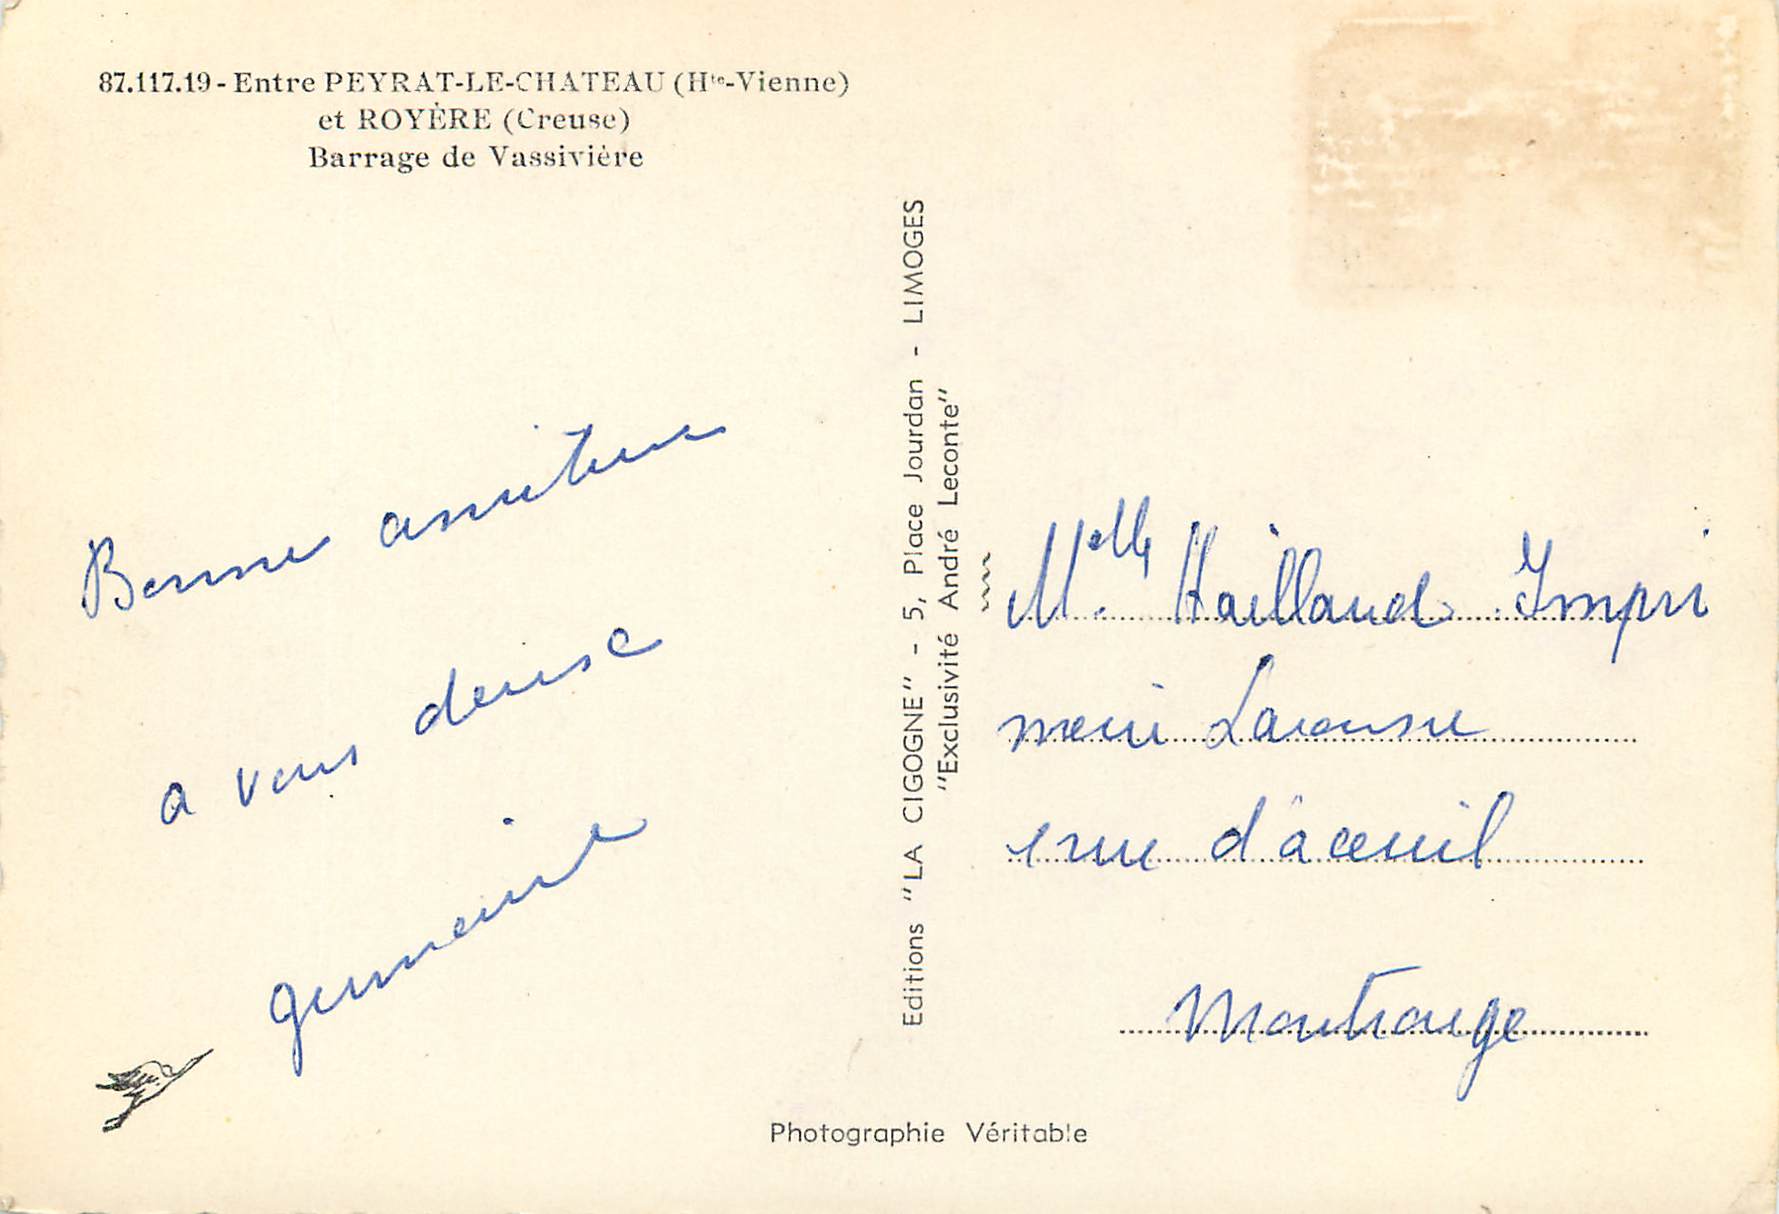 87.117.19 - Entre PEYRAT-LE-CHATEAU (Hte-Vienne)
et ROYÈRE (Creuse)
Barrage de Vassivière
Bonne amitiee
a vous deuse
germaine
Editions "LA CIGOGNE" - 5, Place Jourdan - LIMOGES
"Exclusivité André Leconte"
Melle Haillaud Impri
merie Larousse
rue d'aceuil
Montrouge
Photographie Véritable